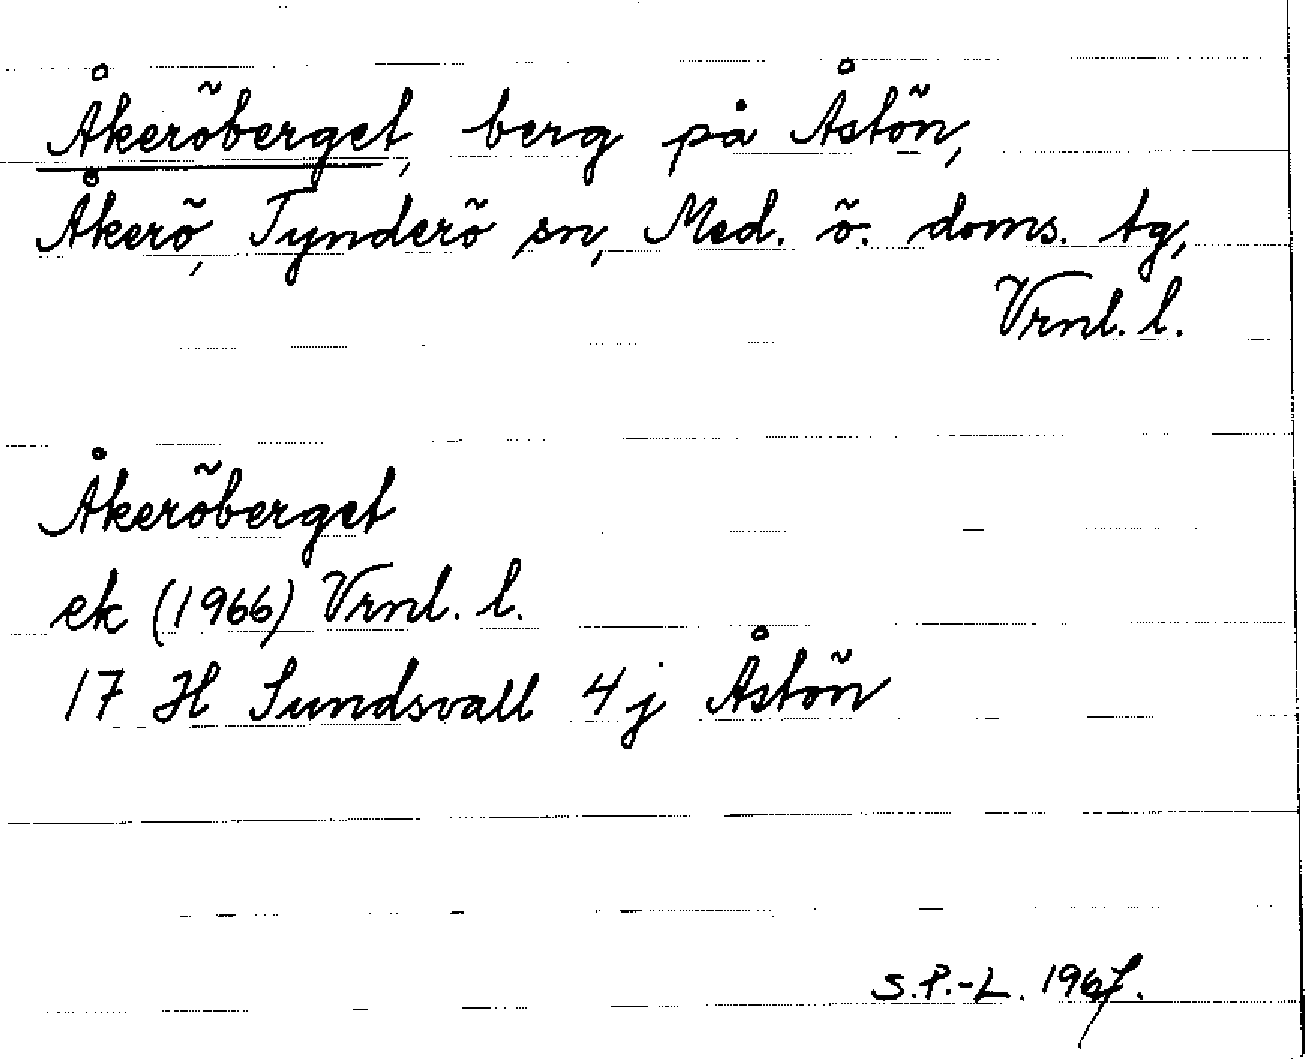 Åkeröberget, berg på Åstön,
Åkerö, Tynderö sn, Med. ö. doms. tg,
Vrnl. l.
Åkeröberget
ek (1966) Vrnl. l.
17 H Sundsvall 4 j Åstön
S.P.-L. 1967.